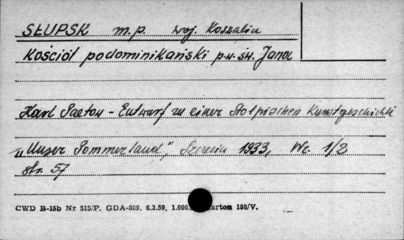 SŁUPSK m.p. woj. Koszalin
Kościół podominikański p.w.św. Jana
Karl Saeton - Entwurf zu einer Stolpischen Kunstgeschichte
"Unser Pommerland", Szczecin 1933, Nr. 1/2
str. 57
CWD B-15b Nr 515/P. GDA-609. 6.3.59, 1.000. karton 180/V.